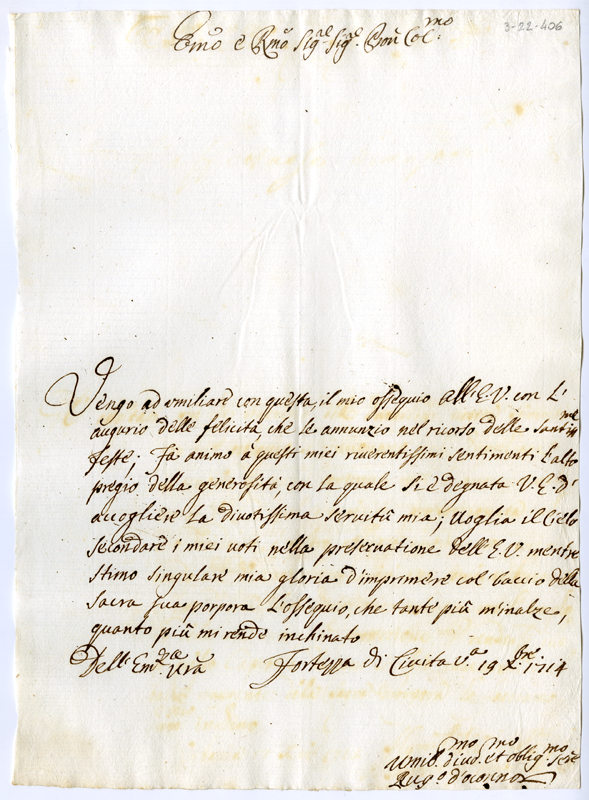 3-22-406
Emo e Rmo Sig.re Sig.e Pron Col.mo
Vengo ad umiliare con questa, il mio ossequio all'E.V. con L'
augurio delle felicità, che le annunzio nel ricorso delle santissme
feste; Fà animo à questi miei riverentissimi sentimenti l'alto
pregio della generosità, con la quale si è degnata V.E. d'
accogliere la divotissima servitù mia; Voglia il Cielo
secondare i miei voti nella preservatione dell'E.V. mentre
stimo singulare mia gloria d'imprimere col baccio della
sacra sua porpora l'ossequio, che tante più m'inalze,
quanto più mi rende inchinato
Dell'Em.za Vra Fortezza di Civita V.a 19 Xbre. 1714
Umil.mo divo.mo et oblig.mo ser.e